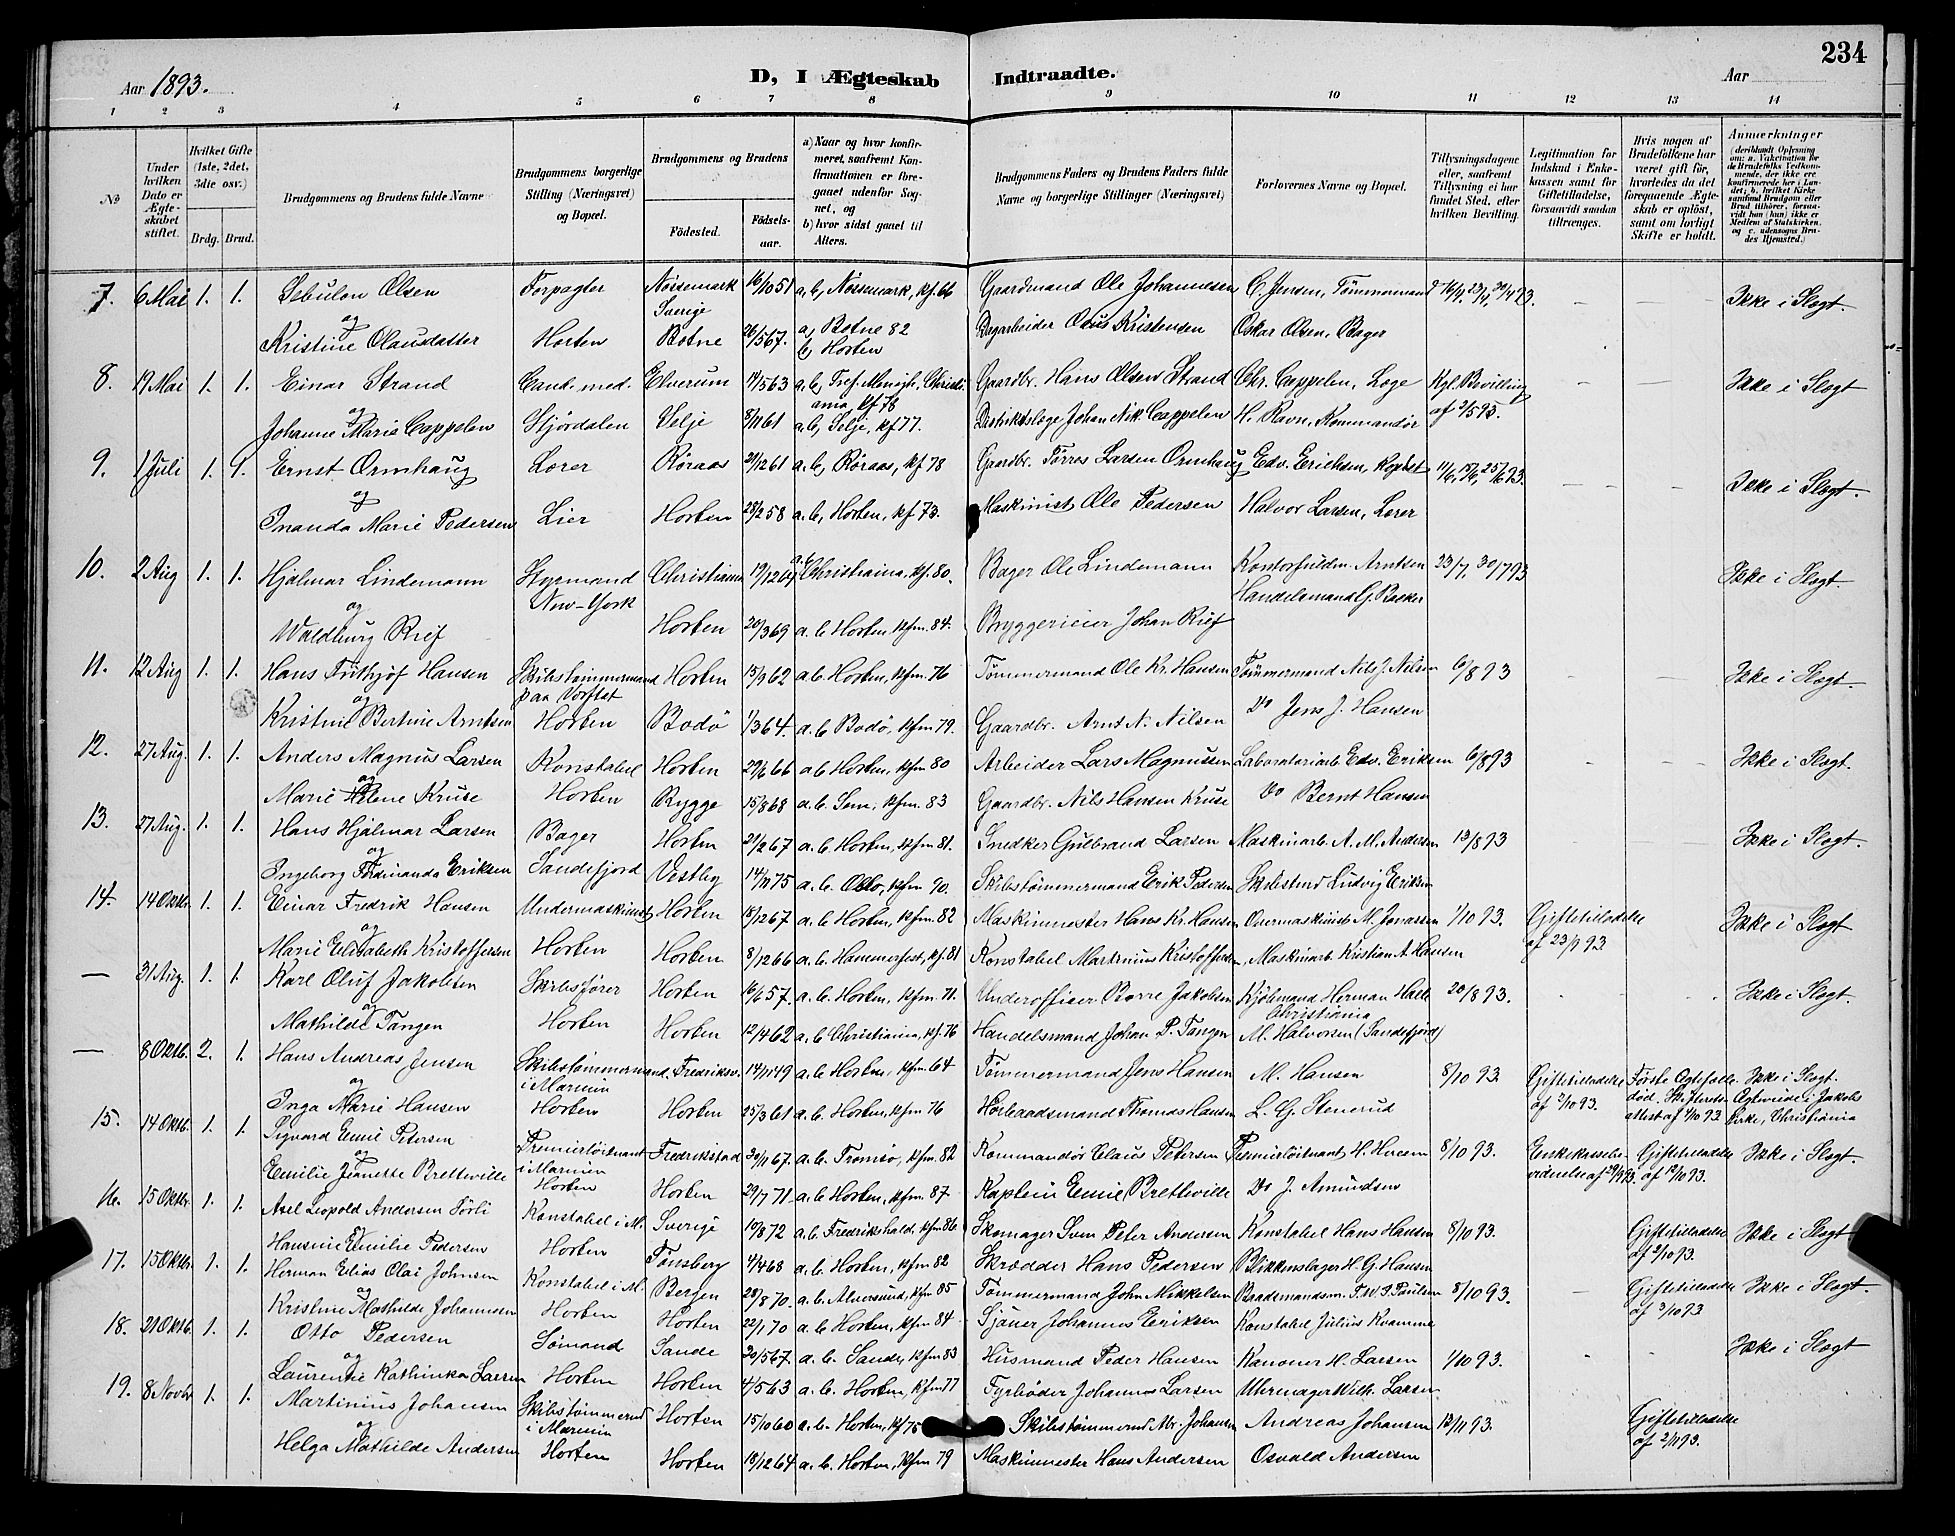 234
Aar 1893. D, I Ægteskab Indtraadte. Aar
1 2 3 4 5 6 7 8 9 10 11 12 13 14
No
Under hvilken Dato er Ægteskabet stiftet.
Hvilket Gifte (1ste, 2det, 3die osv.)
Brdg. Brud.
Brudgommens og Brudens fulde Navne
Brudgommens borgerlige Stilling (Næringsvei) og Bopæl.
Brudgommens og Brudens
Fødested. Fødselsaar.
a) Naar og hvor konfirmeret, saafremt Konfirmationen er foregaaet udenfor Sognet, og
b) hvor sidst gaaet til Alters.
Brudgommens Faders og Brudens Faders fulde Navne og borgerlige Stillinger (Næringsvei)
Forlovernes Navne og Bopæl.
Tillysningsdagene eller, saafremt Tillysning ei har fundet Sted, efter hvilken Bevilling.
Legitimation for Indskud i Enkekassen samt for Giftetilladelse, forsaavidt saadan tiltrænges.
Hvis nogen af Brudefolkene har været gift før, hvorledes da det foregaaende Ægteskab er opløst, samt om lovligt Skifte er holdt.
Anmerkninger (deriblandt Oplysning om: a. Vakcination for de Brudefolks Vedkommende, der ikke ere konfirmerede her i Landet; b. hvilket Kirkesamfund Brudgom eller Brud tilhører, forsaavidt han (hun) ikke er Medlem af Statskirken, og c. udensogns Brudes Hjemsted.)
7. 6 Mai 1. 1. Sebulon Olsen Forpagter Nössemark Sverige 16/10 51 a, b, Nössemark, kf. 66 Gaardmand Ole Johannesen C. Jensen, Tømmermand 16/4, 23/4, 30/4 93. – – Ikke i Slægt.
og Kristine Olausdatter Horten Botne 26/5 67. a) Botne 82 b) Horten Bagarbeider Olaus Kristensen Oskar Olsen, Bager
8. 19 Mai 1. 1. Einar Strand Cand. med. Elverum 11/1 563 a, b, Tref. Menigh., Christiania kf 78 Gaardbr. Hans Olsen Strand Chr. Cappelen, Læge Kgl. Bevilling af 2/5 93. – – Ikke i Slægt
og Johanne Marie Cappelen Stjördalen Selje 8/11 61 a. b, Selje, kf 77. Distriktslæge Johan Nik. Cappelen H. Ravn, Kommandør
9. 1 Juli 1. 1. Ernst Ormhaug Lærer Røraas 21/12 61 a. b, Røraas, kf 78 Gaardbr. Törres Larsen Ormhaug Edv. Erichsen, Kaptet 11/6, 18/6, 25/6 93. – – Ikke i Slægt.
og Inanda Marie Pedersen Lier Horten 28/2 58 a. b, Horten, kf 73. Maskinist Ole Pedersen Halvor Larsen, Lærer
10. 2 Aug 1. 1. Hjalmar Lindemann Styrmand New-York Christiania 19/12 64 a. b. Christiania, kf. 80. Bager Ole Lindemann Kontorfuldm. Arntsen 23/7, 30/7 93 Ikke i Slægt.
og Waldburg Rief Horten 20/3 69 a. b Horten, kfm. 84. Bryggerieier Johan Rief Handelsmand G. Backer
11. 12 Aug 1. 1. Hans Frithjof Hansen Skibstømmermand paa Værftet Horten 15/9 62 a. b. Horten, kfm. 76 Tømmermand Ole Kr. Hansen Tømmermand Nils J. Nilsen 6/8 93 – – Ikke i Slægt.
og Kristine Bertine Arntsen Horten Bodö 1/3 64. a. b Bodö, kfm 79. Gaardbr. Arnt N. Nilsen Do Jens J. Hansen
12. 27 Aug. 1. 1. Anders Magnus Larsen Konstabel Horten 29/6 66 a b Horten, kfm 80 Arbeider Lars Magnussen Laboratoriarb. Edv. Eriksen 6/8 93 – – Ikke i Slægt.
og Marie Helene Kruse Horten Rygge 15/8 68 a. b. Sem, kfm. 83 Gaardbr. Nils Hansen Kruse Do Bernt Hansen
13. 27 Aug. 1. 1. Hans Hjalmar Larsen Bager Horten 21/2 67 a. b. Horten, kfm 81. Snedker Gulbrand Larsen Maskinarb. A. M. Andersen 13/8 93 – – Ikke i Slægt.
og Ingeborg Ferdinanda Eriksen Sandefjord Vestby 14/11 75 a. b. Oslo, kfm 90. Skibstømmermand Erik Pedersen Skibstmd Ludvig Eriksen
14. 14 Oktbr. 1. 1. Einar Fredrik Hansen Undermaskinist Horten 18/12 67 a. b. Horten, kfm. 82 Maskinmester Hans Kr. Hansen Overmaskinist M. Jonassen 1/10 93. Giftetilladelse af 23/9 93 Ikke i Slægt
og Marie Elisabeth Kristoffersen Horten Horten 8/12 66 a. b. Hammerfest, kf. 81 Konstabel Martinius Kristoffersen Maskinarb. Kristian A. Hansen
– 31 Aug. 1. 1. Karl Oluf Jakobsen Skibsfører Horten 16/6 57 a. b. Horten, kfm. 71. Underofficer Borre Jakobsen Kjöbmand Herman Halle Christiania 20/8 93. – – Ikke i Slægt.
og Mathilde Tangen Horten Horten 12/4 62 a. b Christiania, kf. 76 Handelsmand Johan P. Tangen M. Halvorsen (Sandefjord)
– 8 Oktb. 2. 1. Hans Andreas Jensen Skibstømmermand i Marinen Fredriksv. 14/11 49 a. b Horten, kfm. 64 Tømmermand Jens Hansen M. Hansen 8/10 93. Giftetilladelse af 2/10 93. Første Ægtefælle död. Skifterets attest af 4/10 93 Ikke i Slægt. Ægteviede i Jakobs Kirke, Christiania
og Inga Marie Hansen Horten Horten 25/3 61 a. b. Horten, kfm 76 Thomas Hansen L. G. Stenerud
15. 14 Oktb. 1. 1. Sigvard Emil Petersen Premierlöitnant i Marinen Fredriksstad 30/11 67. a. b. Tromsö, kfm. 82 Kommandör Claus Petersen Premierlöitnant H. Hveem 8/10 93. Enkekassebevidnelse af 29/9 93. Giftetilladelse af 12/10 93. Ikke i Slægt.
og Emilie Jeanette Bretteville Horten Horten 29/7 71 a. b Horten, kfm. 87. Kaptein Emil Bretteville Do J. Amundsen
16. 15 Oktbr. 1. 1. Axel Leopold Andersen Törli Konstabel i M. Sverige 10/8 72 a. b. Fredrikshald, kfm. 86 Skomager Sven Peter Andersen Konstabel Hans Hansen 8/10 93. Giftetilladelse af 2/10 93. Ikke i Slægt
og Hansine Emilie Pedersen Horten Tønsberg 4/4 68 a. b. Horten, kfm 82 Skrædder Hans Pedersen Blikkenslager H. G. Hansen
17. 15 Oktbr. 1. 1. Herman Elias Olai Johnsen Konstabel i M. Bergen 28/8 70. a. b. Alversund, kfm 85 Tømmermand John Mikkelsen Baadsmandsm. T. W. P. Paulsen 8/10 93. – Giftetilladelse af 3/10 93 Ikke i Slægt.
og Kristine Mathilde Johannesen Horten Horten 22/1 70 a. b Horten, kfm 84 Sjöver Johannes Eriksen Konstabel Julius Kvamme
18. 21 Oktb. 1. 1. Otto Pedersen Sømand Sande 20/5 67. a. b. Sande, kfm 83 Husmand Peder Hansen Kanoner H. Larsen 1/10 93. – – Ikke i Slægt
og Laurentse Kathinka Larsen Horten Horten 4/5 63 a. b. Horten, kfm 77 Fyrbøder Johannes Larsen Uhrmager Wilh. Larsen
19. 8 Novbr 1. 1. Martinius Johansen Skibstømmermd i Marinen Horten 15/10 60 a. b. Horten, kf 75 Skibstømmermd Mr. Johansen Andreas Johansen 12/11 93. Giftetilladelse af 2/11 93.
og Helga Mathilde Andersen Horten Horten 18/12 64 a. b. Horten, kfm 79 Maskinmester Hans Andersen Osvald Andersen